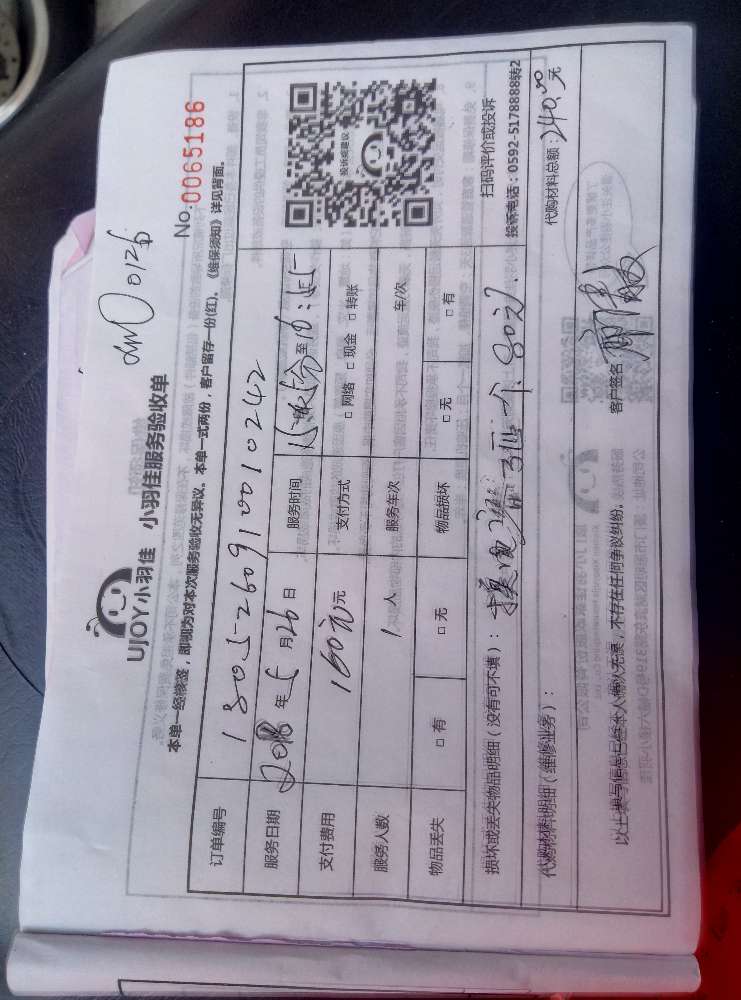 UJOY小羽佳 小羽佳服务验收单
0126
No.0065186
本单一经核签，即明为对本次服务验收无异议。本单一式两份，客户留存一份(红)、《维保须知》详见背面。
订单编号 1805260910010242
服务日期 2018年5月26日 服务时间 15 至16:55
支付费用 160元 支付方式 □网络 □现金 □转账
服务人数 1人 服务车次 车/次
物品丢失 □有 □无 物品损坏 □无 □有
投诉或建议
扫码评价或投诉
投诉电话：0592-5178888转2
损坏或丢失物品明细（没有可不填）： 换 一个80元
代购材料明细（维修业务）：
代购材料总额：240.00元
以上填写信息已经本人确认无误，不存在任何争议纠纷。
客户签名